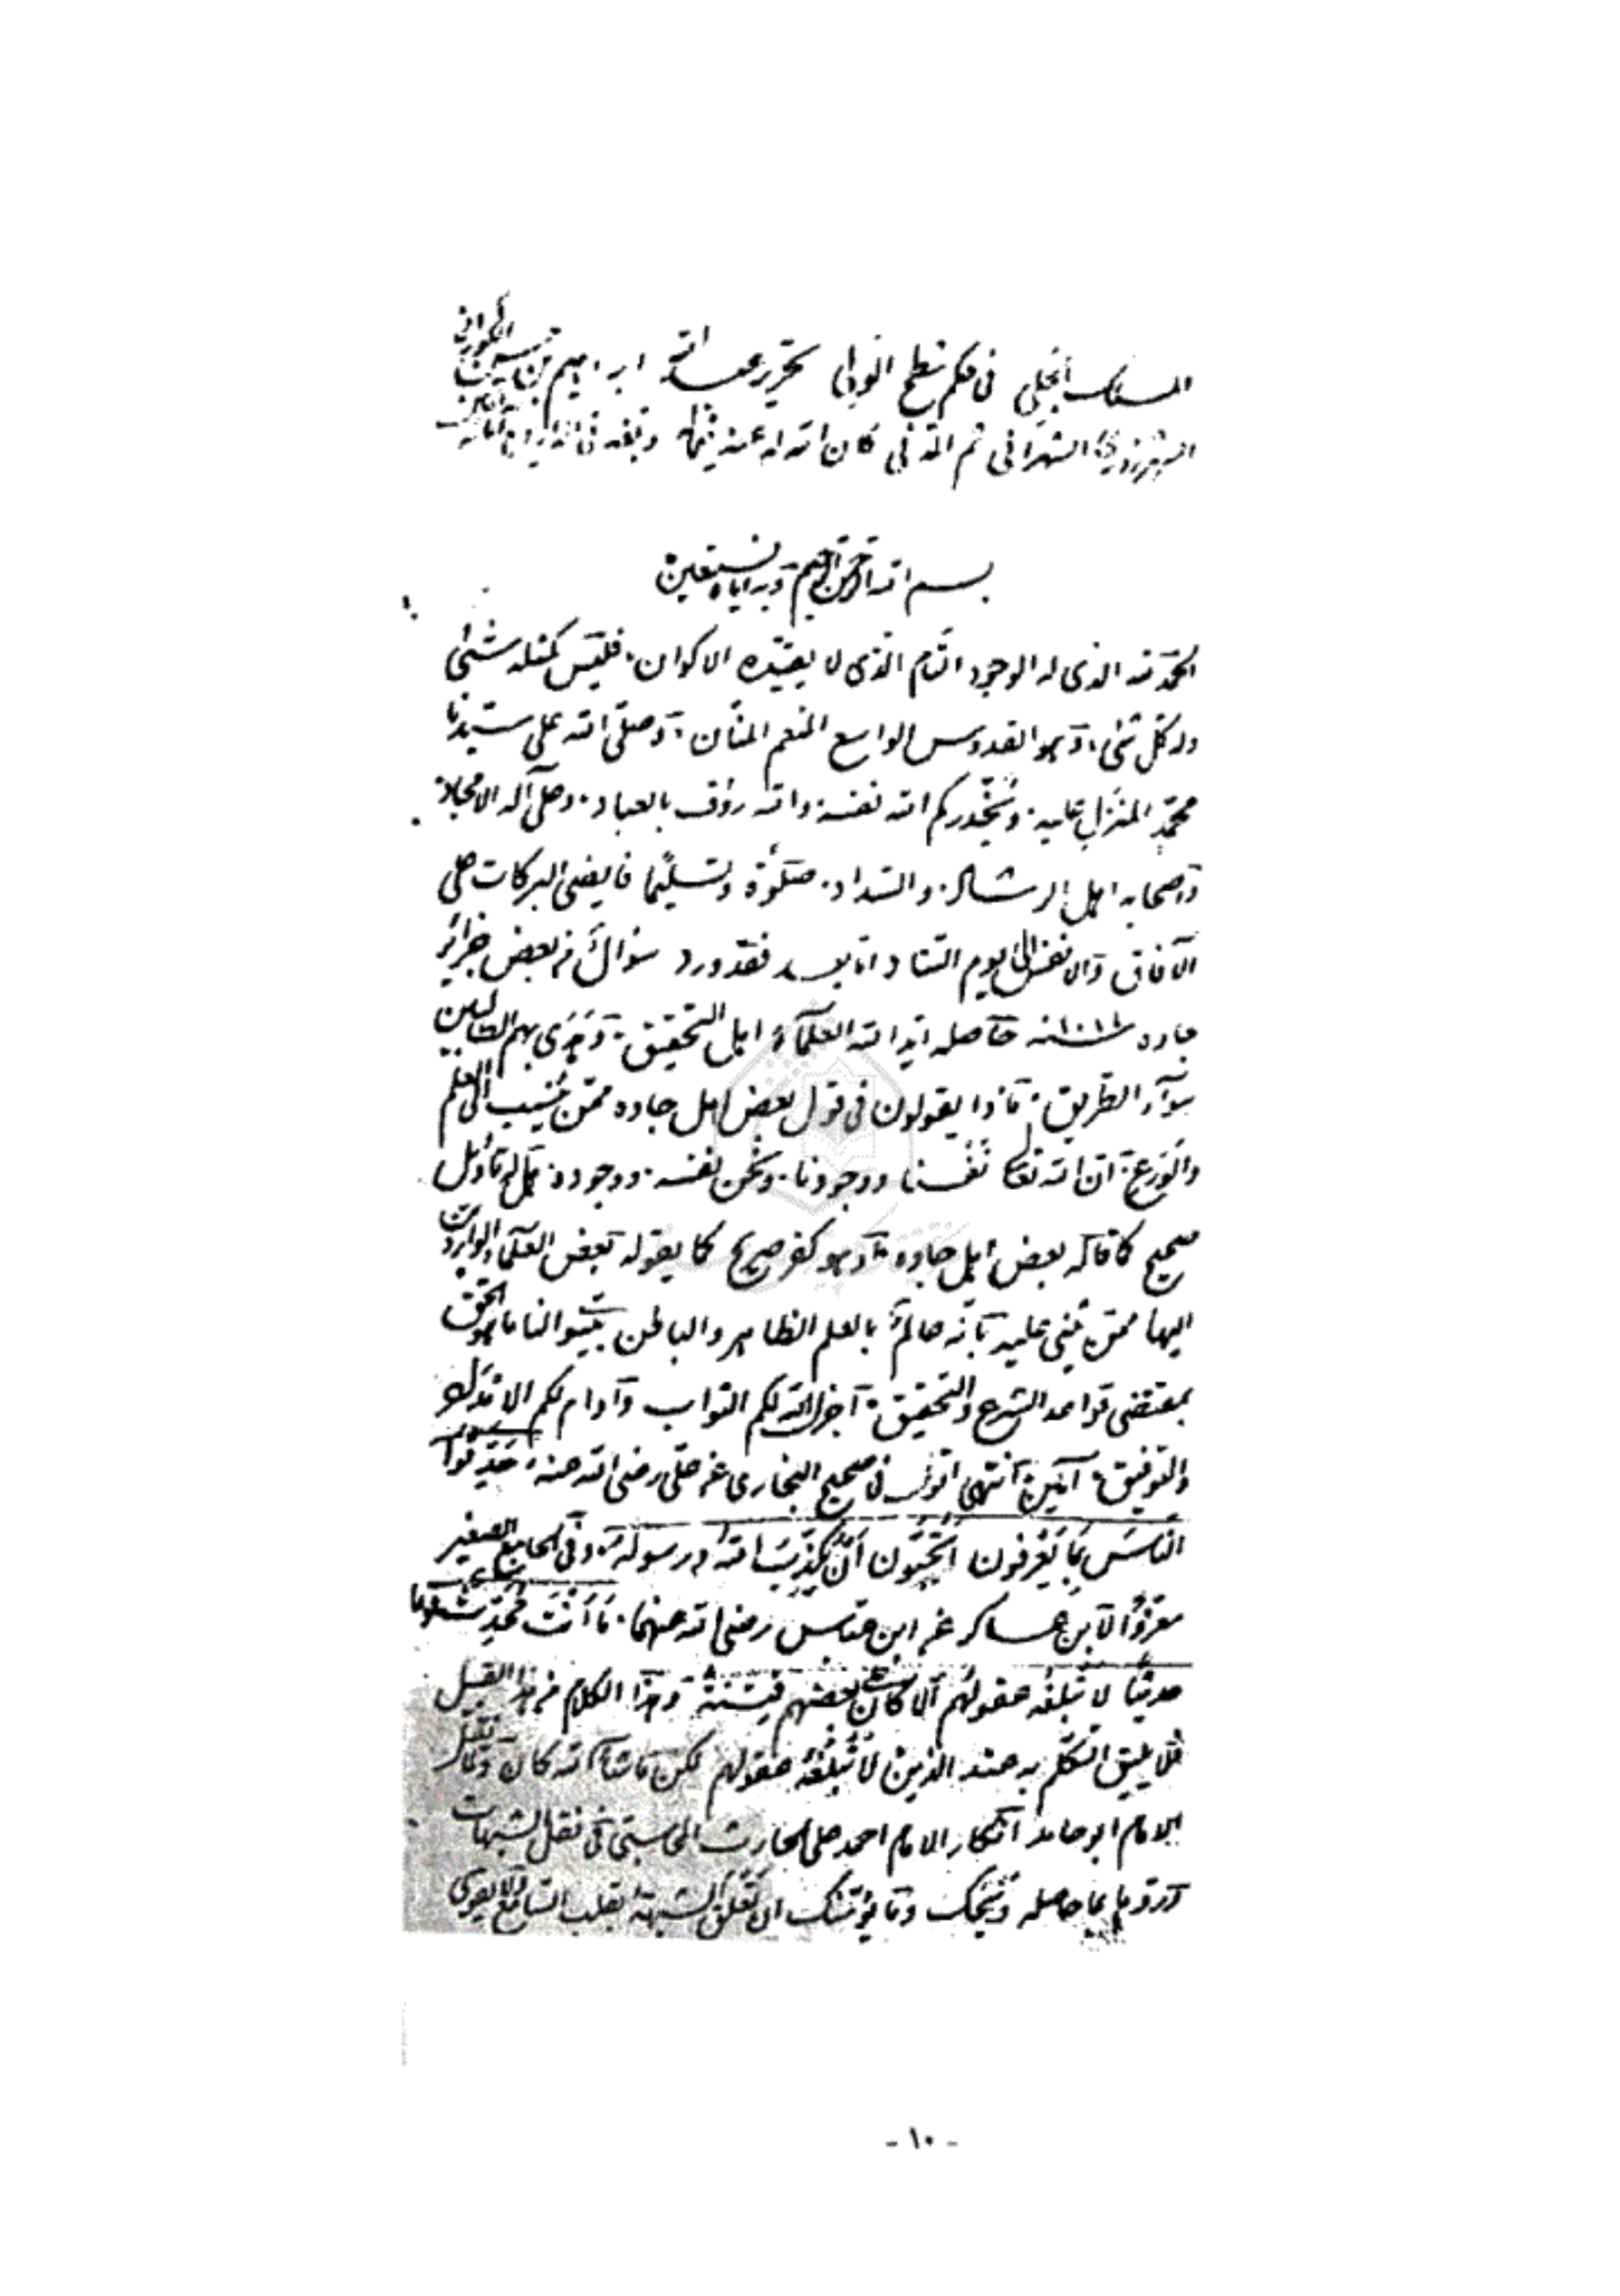 المسلك الجلي في حكم شطح الولي تحرير عبد الله ابراهيم بن حسن الكوراني
الشهرزوري الشهراني ثم المدني كان الله له عنه فيما
بسم الله الرحمن الرحيم وبه اياه نستعين
الحمد لله الذي له الوجود التام الذي لا يقيده الاكوان فليس كمثله شئ
وله كل شئ وهو القدوس الواسع المنعم المنان وصلى الله على سيدنا
محمد المنزل عليه ويحذركم الله نفسه والله رؤف بالعباد وعلى آله الامجاد
وأصحابه اهل الرشاد والسداد صلوة وتسليما فايضي البركات على
الآفاق والانفس الى يوم التناد اما بعد فقد ورد سؤال من بعض جزائر
جاوه سنه حاصله ايد الله العلماء اهل التحقيق وهدى بهم الطالبين
سواء الطريق ماذا يقولون في قول بعض اهل جاوه ممن ينسب الى العلم
والورع ان الله تعالى نفسنا ووجودنا ونحن نفسه ووجوده هل له تأويل
صحيح كما قاله بعض اهل جاوه او هو كفر صريح كما يقوله بعض العلماء الواردين
اليها ممن يثنى عليه بأنه عالم بالعلم الظاهر والباطن بينوا لنا ما هو الحق
بمقتضى قواعد الشرع والتحقيق اجزل الله لكم الثواب وأدام لكم الامداد
والتوفيق آمين انتهى اقول في صحيح البخاري عن علي رضي الله عنه حدثوا
الناس بما يعرفون اتحبون ان يكذب الله ورسوله وفي الجامع الصغير
معزوا لابن عساكر عن ابن عباس رضي الله عنهما ما أنت محدث قوما
حديثا لا تبلغه عقولهم الا كان على بعضهم فتنة وهذا الكلام من هذا القبيل
فلا يليق التكلم به عند الذين لا تبلغه عقولهم لكن ما شاء الله كان ونقل
الامام ابو حامد انكار الامام احمد على الحارث المحاسبي في نقل شبهات
وردوها بما حاصله ويحك وما يؤمنك ان تعلق الشبهة بقلب السامع ولا يقوى
- ١٠ -